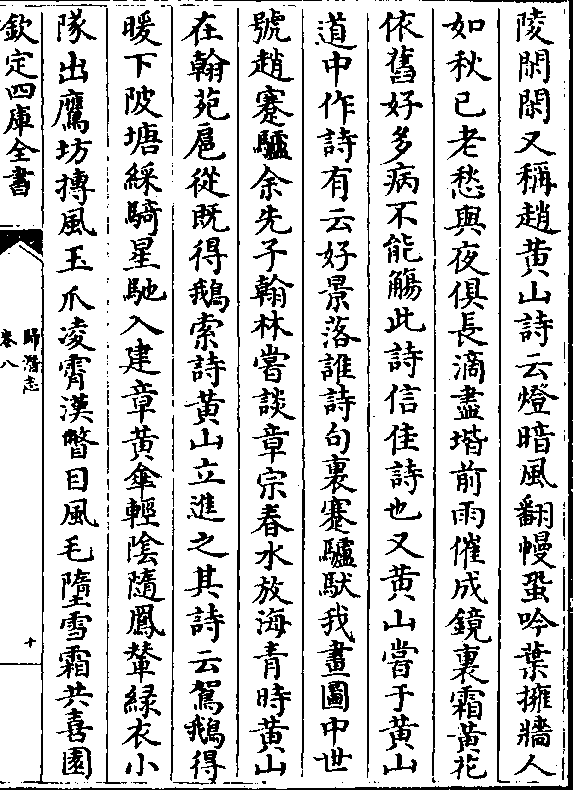 陵閑閑又稱趙黄山詩云燈暗風翻幔蛩吟葉擁牆人
如秋已老愁與夜俱長滴盡堦前雨催成鏡裏霜黄花
依舊好多病不能觴此詩信佳詩也又黄山嘗于黄山
道中作詩有云好景落誰詩句裏蹇驢馱我畫圖中世
號趙蹇驢余先子翰林嘗談章宗春水放海青時黄山
在翰苑扈從既得鵝索詩黄山立進之其詩云駕鵝得
暖下陂塘綵騎星馳入建章黄傘輕陰隨鳳輦緑衣小
隊出鷹坊摶風玉爪凌霄漢瞥日風毛墮雪霜共喜園
欽定四庫全書
歸潛志
卷八
十